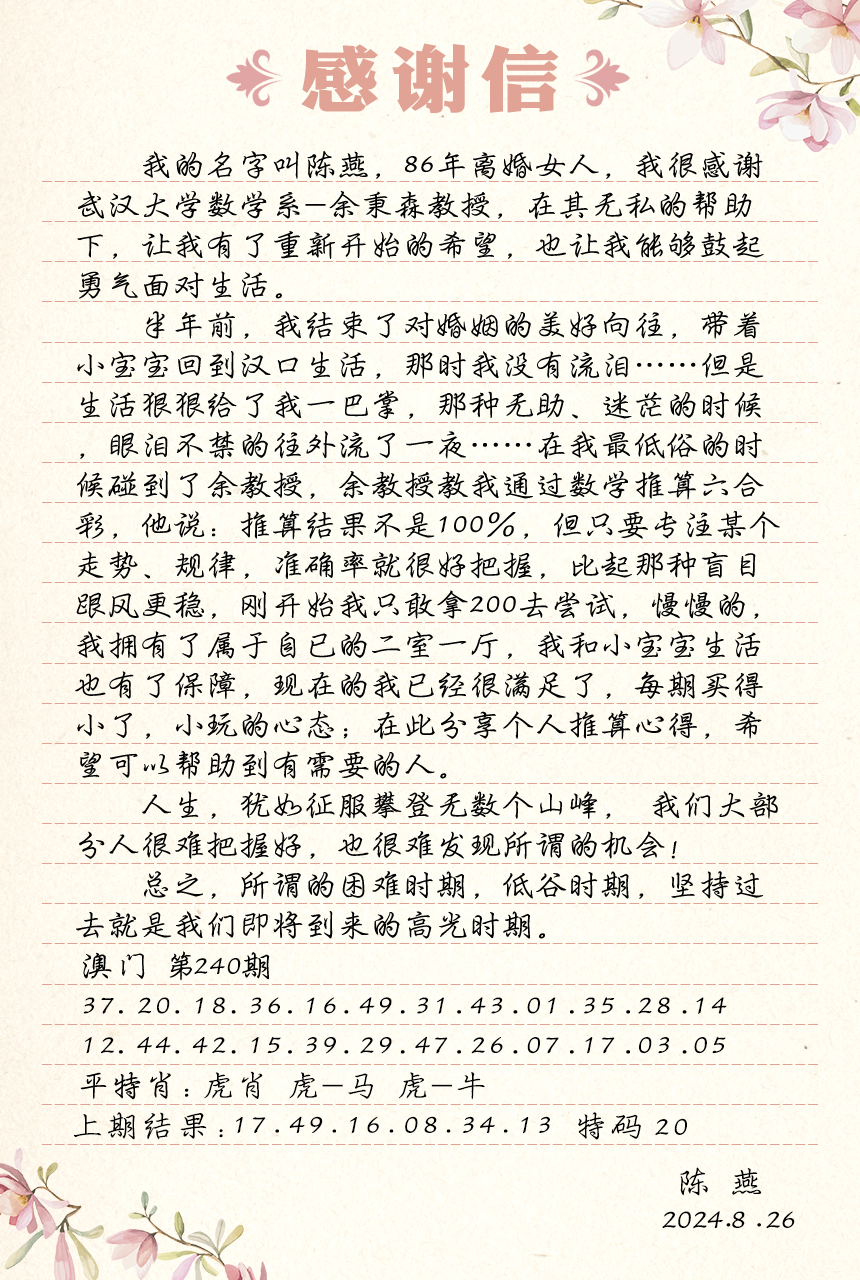 感谢信
我的名字叫陈燕，86年离婚女人，我很感谢
武汉大学数学系—余秉森教授，在其无私的帮助
下，让我有了重新开始的希望，也让我能够鼓起
勇气面对生活。
半年前，我结束了对婚姻的美好向往，带着
小宝宝回到汉口生活，那时我没有流泪……但是
生活狠狠给了我一巴掌，那种无助、迷茫的时候
，眼泪不禁的往外流了一夜……在我最低俗的时
候碰到了余教授，余教授教我通过数学推算六合
彩，他说：推算结果不是100%，但只要专注某个
走势、规律，准确率就很好把握，比起那种盲目
跟风更稳，刚开始我只敢拿200去尝试，慢慢的，
我拥有了属于自已的二室一厅，我和小宝宝生活
也有了保障，现在的我已经很满足了，每期买得
小了，小玩的心态；在此分享个人推算心得，希
望可以帮助到有需要的人。
人生，犹如征服攀登无数个山峰， 我们大部
分人很难把握好，也很难发现所谓的机会！
总之，所谓的困难时期，低谷时期，坚持过
去就是我们即将到来的高光时期。
澳门 第240期
37.20.18.36.16.49.31.43.01.35.28.14
12.44.42.15.39.29.47.26.07.17.03.05
平特肖：虎肖 虎—马 虎—牛
上期结果：17.49.16.08.34.13 特码 20
陈 燕
2024.8.26